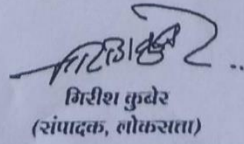 गिरीश कुबेर
(संपादक, लोकसत्ता)